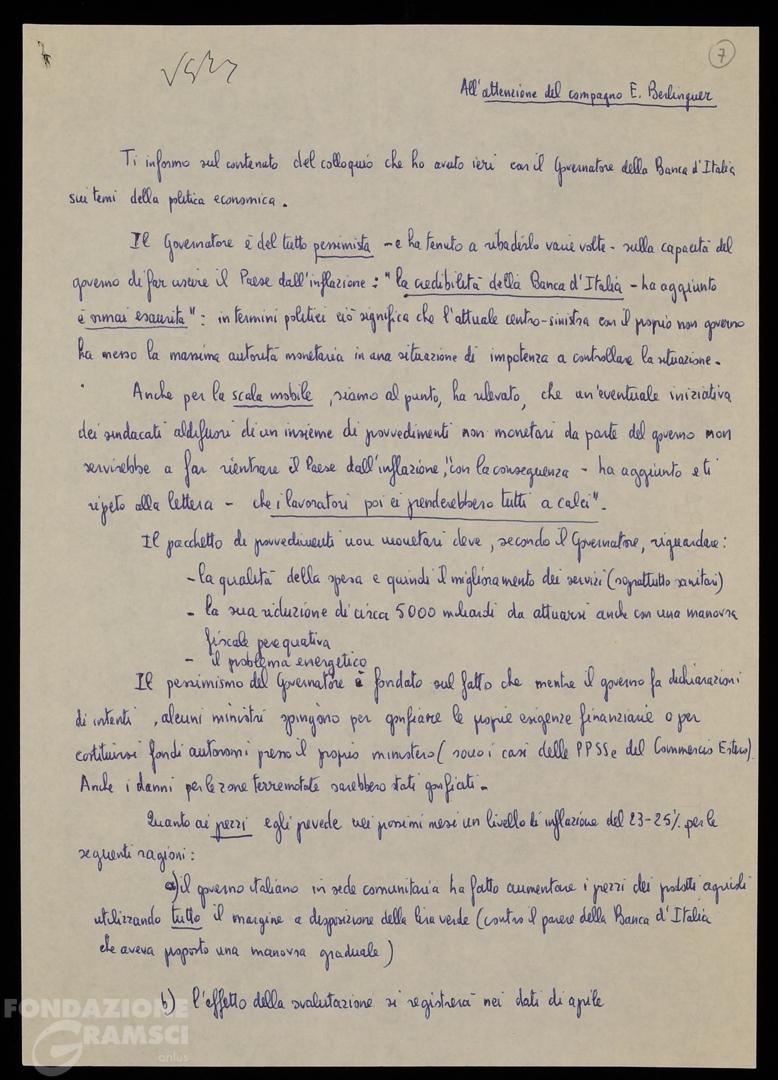 7
All'attenzione del compagno E. Berlinguer
Ti informo sul contenuto del colloquio che ho avuto ieri con il Governatore della Banca d'Italia
sui temi della politica economica.
Il Governatore è del tutto pessimista – e ha tenuto a ribadirlo varie volte – sulla capacità del
governo di far uscire il Paese dall'inflazione: "la credibilità della Banca d'Italia – ha aggiunto
è ormai esaurita": in termini politici ciò significa che l'attuale centro-sinistra con il proprio non governo
ha messo la massima autorità monetaria in una situazione di impotenza a controllare la situazione.
Anche per la scala mobile, siamo al punto, ha rilevato, che un'eventuale iniziativa
dei sindacati aldifuori di un insieme di provvedimenti non monetari da parte del governo non
servirebbe a far rientrare il Paese dall'inflazione, "con la conseguenza – ha aggiunto e ti
ripeto alla lettera – che i lavoratori poi ci prenderebbero tutti a calci".
Il pacchetto di provvedimenti non monetari deve, secondo il Governatore, riguardare:
- la qualità della spesa e quindi il miglioramento dei servizi (soprattutto sanitari)
- la sua riduzione di circa 5000 miliardi da attuarsi anche con una manovra
fiscale perequativa
- il problema energetico
Il pessimismo del Governatore è fondato sul fatto che mentre il governo fa dichiarazioni
di intenti, alcuni ministri spingono per gonfiare le proprie esigenze finanziarie o per
costituirsi fondi autonomi presso il proprio ministero (sono i casi delle PPSS e del Commercio Estero).
Anche i danni per le zone terremotate sarebbero stati gonfiati.
Quanto ai prezzi egli prevede nei prossimi mesi un livello di inflazione del 23-25% per le
seguenti ragioni:
a) il governo italiano in sede comunitaria ha fatto aumentare i prezzi dei prodotti agricoli
utilizzando tutto il margine a disposizione della lira verde (contro il parere della Banca d'Italia
che aveva proposto una manovra graduale)
b) l'effetto della svalutazione si registrerà nei dati di aprile
FONDAZIONE
GRAMSCI
onlus